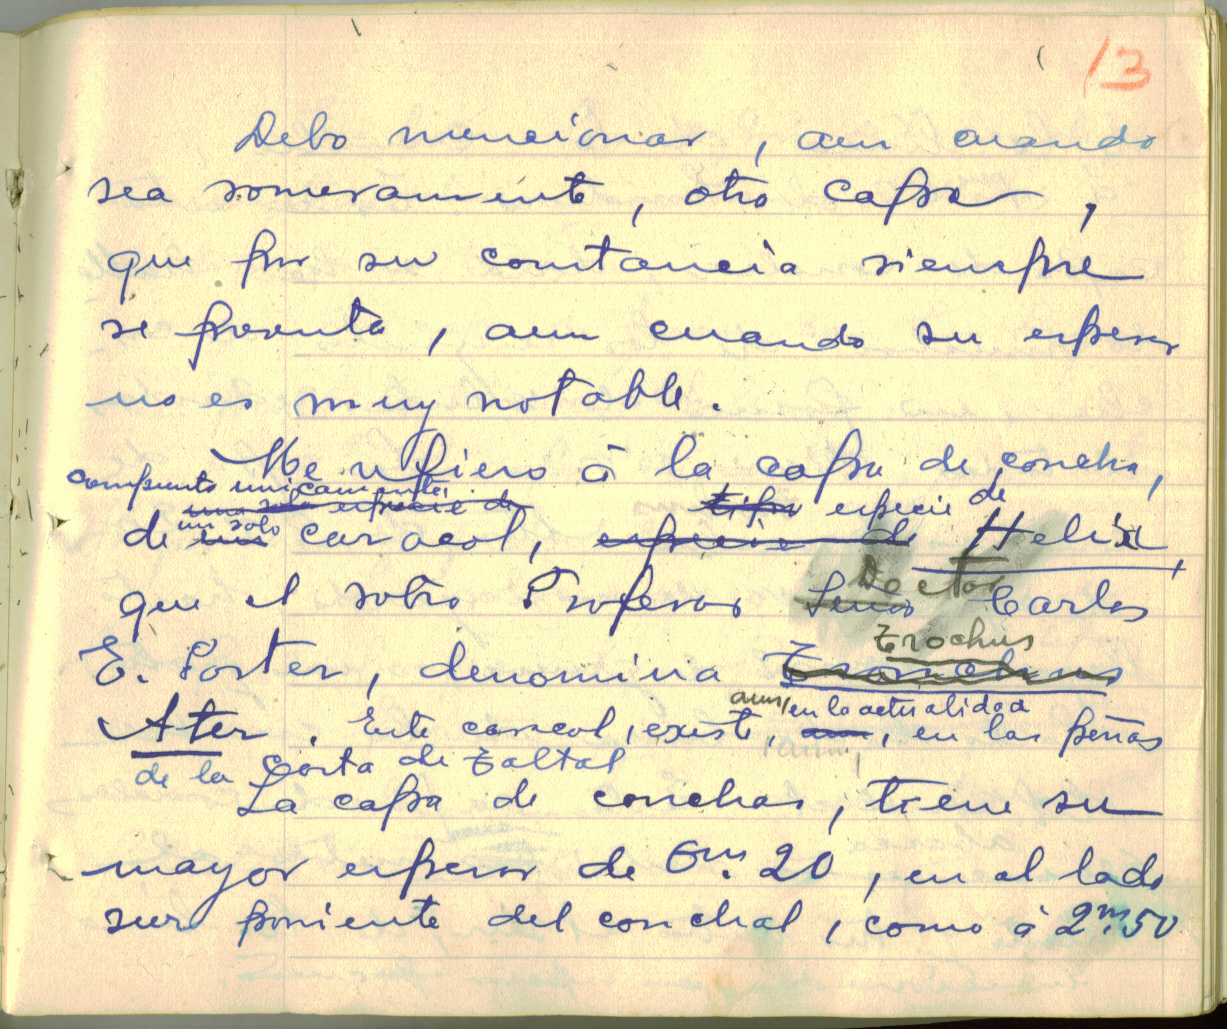 13
Debo mencionar, aun cuando
sea someramente, otra capa,
que por su constancia siempre
se presenta, aun cuando su espesor
no es muy notable.
Me refiero á la capa de concha,
compuesta unicamente
una sola especie de tipo especie de
un solo
de un caracol, especie de Helix,
Doctor
que el sabio Profesor Señor Carlos
Trochus
E. Porter, denomina Tronchus
aun, en la actualidad
Ater. Este caracol, existe, aun, en las peñas
de la Costa de Taltal
La capa de conchas, tiene su
mayor espesor de 0m. 20, en el lado
sur poniente del conchal, como á 2m.50